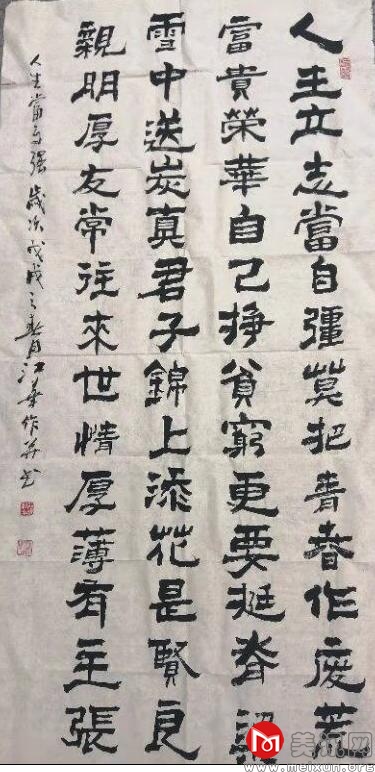 人生立志當自彊莫把青春作废荒
富貴榮華自己挣貧窮更要挺脊梁
雪中送炭真君子錦上添花是賢良
親朋厚友常往來世情厚薄有主張
人生當自强 歲次戊戌之春月江華作并书
美讯网
www.meixun.org